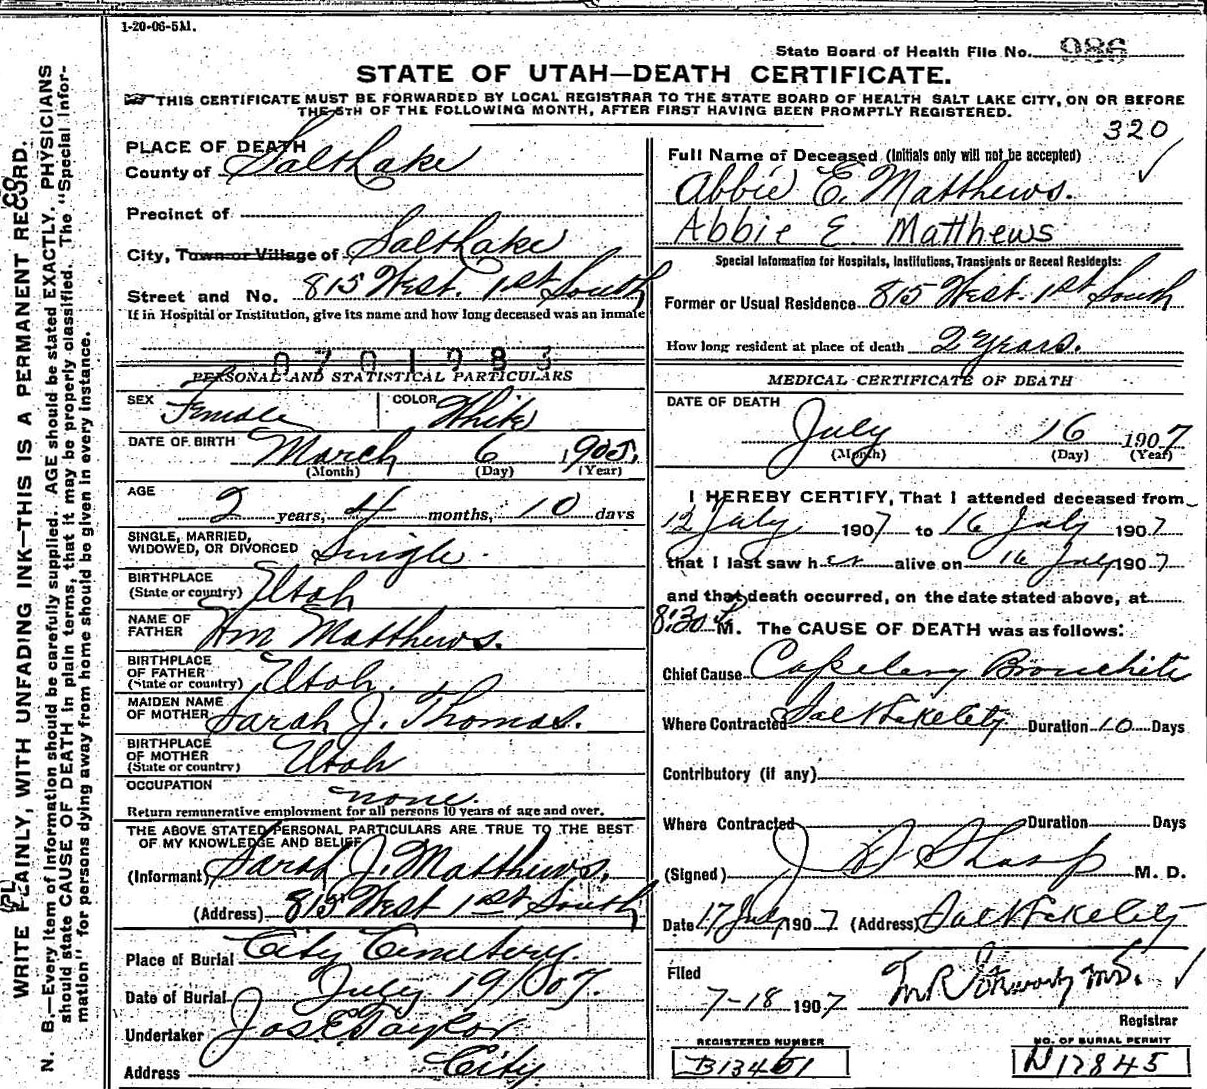 1-20-06-5M.
State Board of Health File No. 986
STATE OF UTAH—DEATH CERTIFICATE.
THIS CERTIFICATE MUST BE FORWARDED BY LOCAL REGISTRAR TO THE STATE BOARD OF HEALTH SALT LAKE CITY, ON OR BEFORE
THE 5TH OF THE FOLLOWING MONTH, AFTER FIRST HAVING BEEN PROMPTLY REGISTERED.
320
PLACE OF DEATH
County of Salt Lake
Precinct of
City, Town or Village of Salt Lake
Street and No. 815 West. 1st South
If in Hospital or Institution, give its name and how long deceased was an inmate
0701983
PERSONAL AND STATISTICAL PARTICULARS
SEX Female COLOR White
DATE OF BIRTH March 6 1905.
(Month) (Day) (Year)
AGE
2 years, 4 months, 10 days
SINGLE, MARRIED,
WIDOWED, OR DIVORCED Single.
BIRTHPLACE
(State or country) Utah
NAME OF
FATHER Wm Matthews.
BIRTHPLACE
OF FATHER
(State or country) Utah.
MAIDEN NAME
OF MOTHER Sarah J. Thomas.
BIRTHPLACE
OF MOTHER
(State or country) Utah
OCCUPATION none.
Return remunerative employment for all persons 10 years of age and over.
THE ABOVE STATED PERSONAL PARTICULARS ARE TRUE TO THE BEST
OF MY KNOWLEDGE AND BELIEF
(Informant) Sarah J. Matthews.
(Address) 815 West 1st South
Place of Burial City Cemetery.
Date of Burial July 19/07.
Undertaker Jos E Taylor
Address City
Full Name of Deceased (Initials only will not be accepted)
Abbie E. Matthews.
Abbie E Matthews
Special Information for Hospitals, Institutions, Transients or Recent Residents:
Former or Usual Residence 815 West. 1st South
How long resident at place of death 2 Years.
MEDICAL CERTIFICATE OF DEATH
DATE OF DEATH
July 16 1907
(Month) (Day) (Year)
I HEREBY CERTIFY, That I attended deceased from
12 July 1907 to 16 July 1907
that I last saw her alive on 16 July 1907
and that death occurred, on the date stated above, at
8:30 P M. The CAUSE OF DEATH was as follows:
Chief Cause Capillary Bronchitis
Where Contracted Salt Lake City Duration 10 Days
Contributory (if any)
Where Contracted Duration Days
(Signed) J D Sharp M. D.
Date 17 July 1907 (Address) Salt Lake City
Filed
7-18 1907 M.D.
Registrar
REGISTERED NUMBER
B13461
NO. OF BURIAL PERMIT
N 12845
WRITE PLAINLY, WITH UNFADING INK—THIS IS A PERMANENT RECORD.
N. B.—Every item of information should be carefully supplied. AGE should be stated EXACTLY. PHYSICIANS
should state CAUSE OF DEATH in plain terms, that it may be properly classified. The "Special Infor-
mation" for persons dying away from home should be given in every instance.